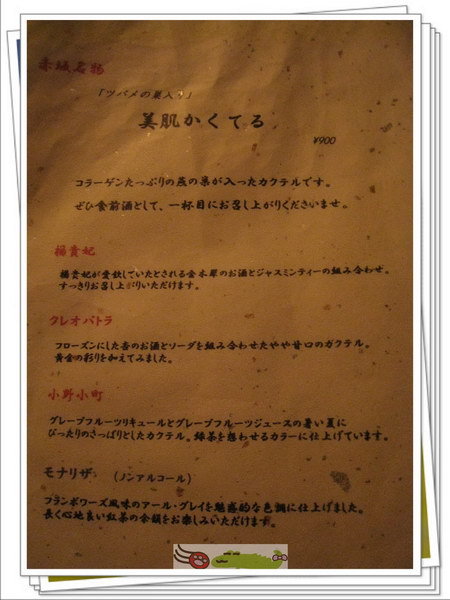 赤城名物
「ツバメの巣入り」
美肌かくてる
¥900
コラーゲンたっぷりの燕の巣が入ったカクテルです。
ぜひ食前酒として、一杯目にお召し上がりくださいませ。
楊貴妃
楊貴妃が愛飲していたとされる金木犀のお酒とジャスミンティーの組み合わせ。
すっきりお召し上がりいただけます。
クレオパトラ
フローズンにした杏のお酒とソーダを組み合わせたやや甘口のカクテル。
黄金の彩りを加えてみました。
小野小町
グレープフルーツリキュールとグレープフルーツジュースの暑い夏に
ぴったりのさっぱりとしたカクテル。緑茶を想わせるカラーに仕上げています。
モナリザ (ノンアルコール)
フランボワーズ風味のアール・グレイを魅惑的な色調に仕上げました。
長く心地良い紅茶の余韻をお楽しみいただけます。